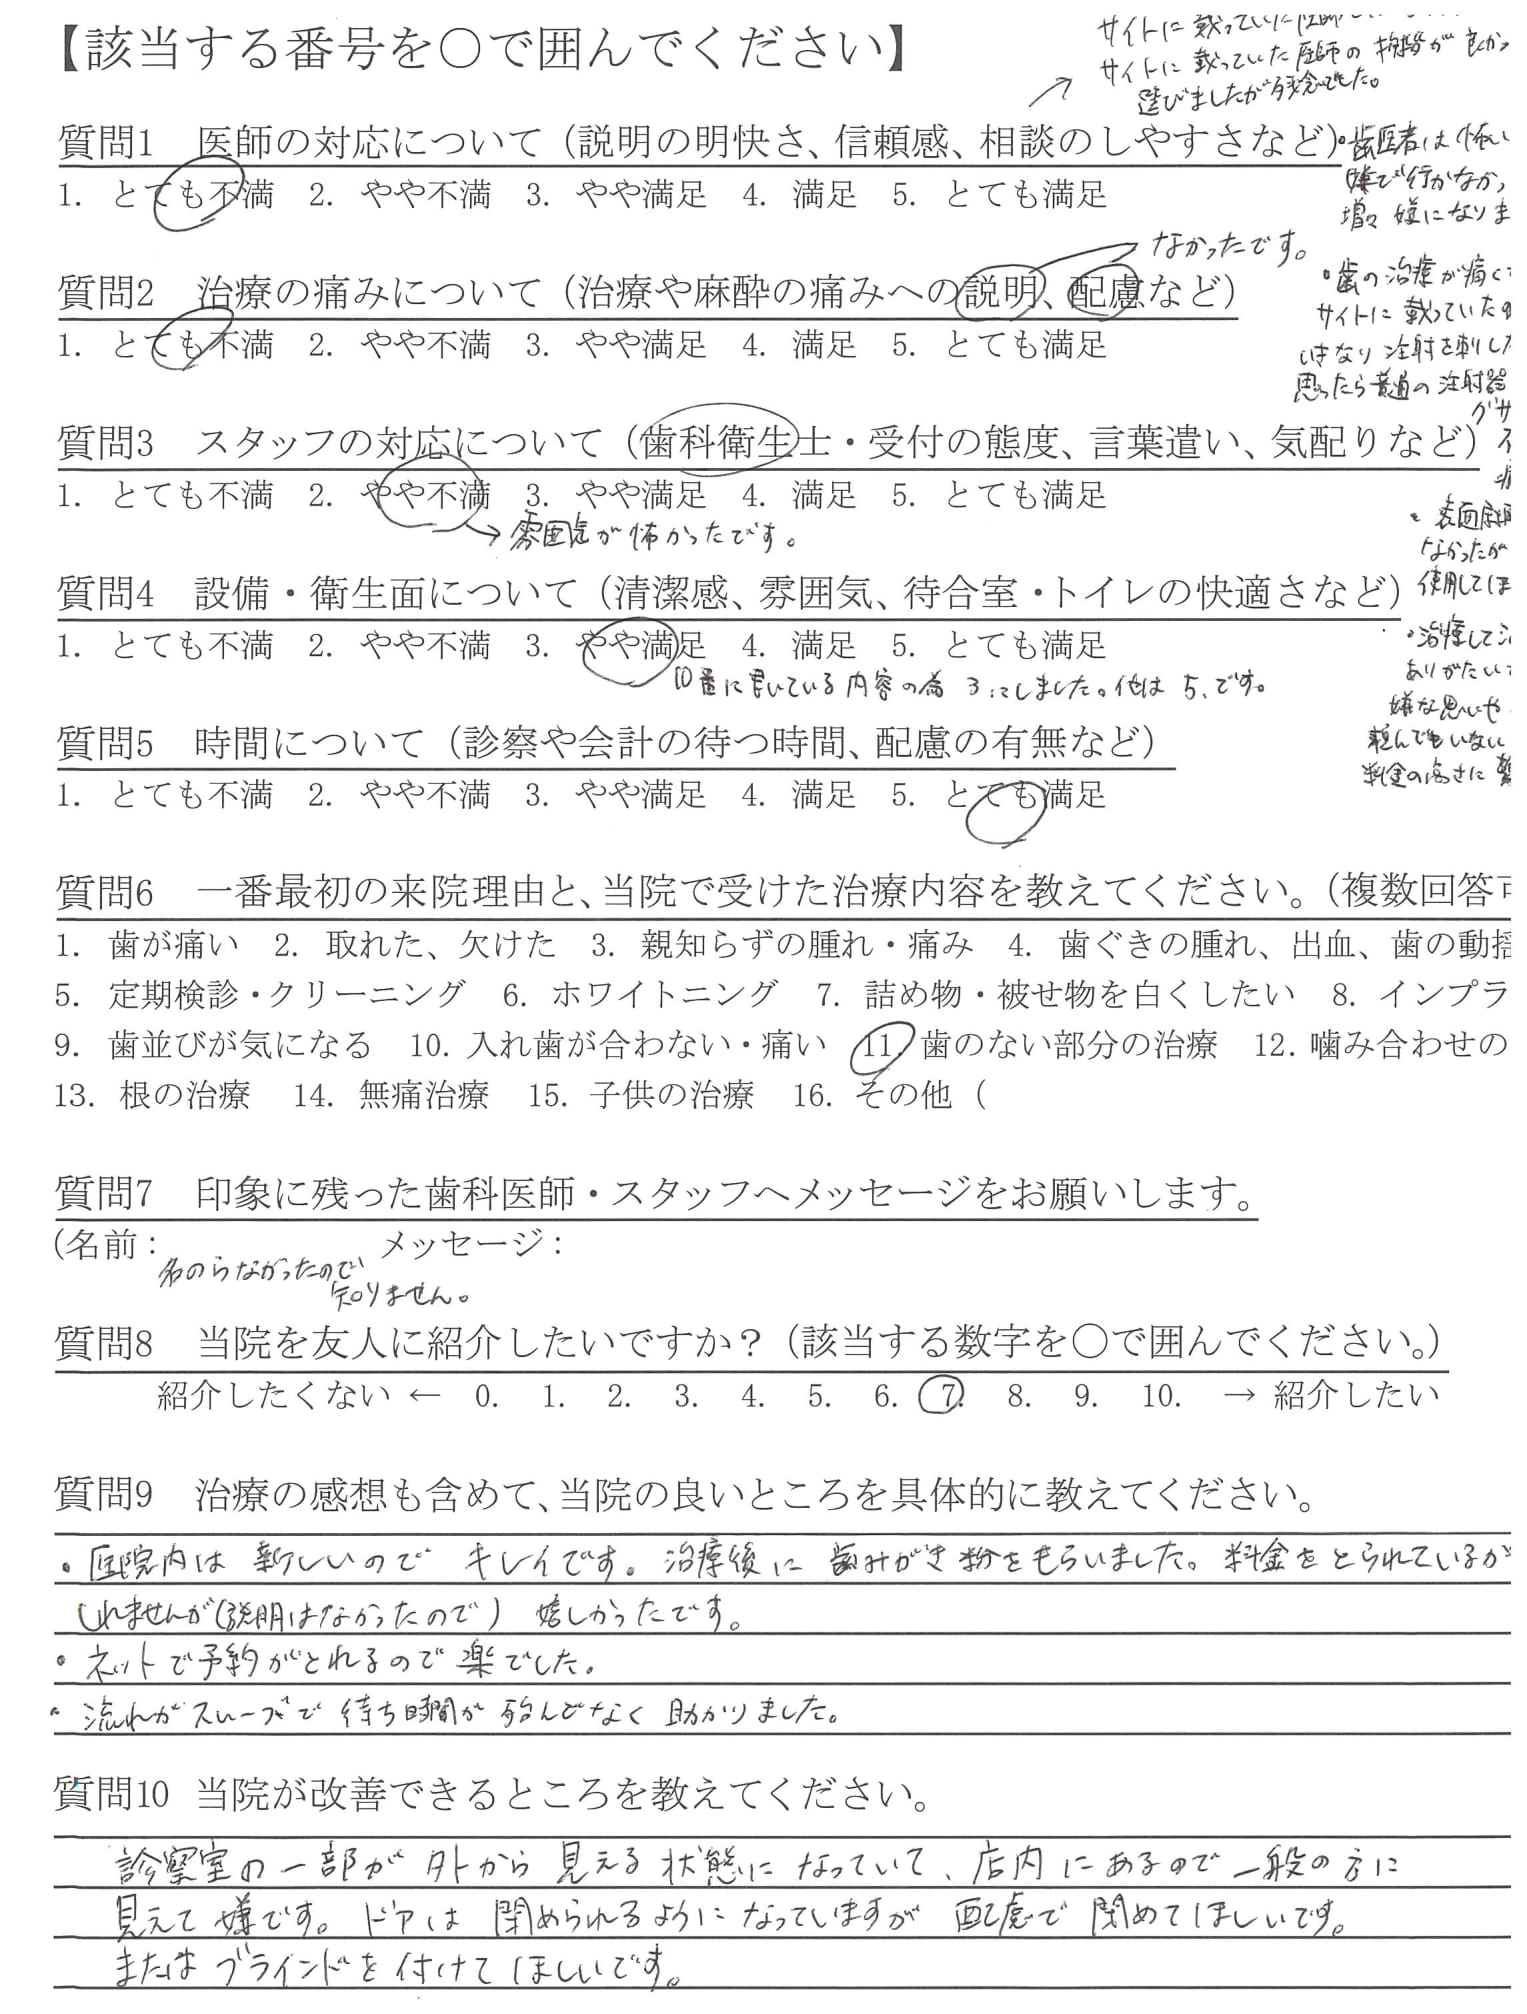 【該当する番号を○で囲んでください】
サイトに載っていた医師の
サイトに載っていた医師の
選びましたが残念でした。
質問1 医師の対応について（説明の明快さ、信頼感、相談のしやすさなど）
・歯医者は怖い
嫌で行かなかっ
増々嫌になりま
1. とても不満 2. やや不満 3. やや満足 4. 満足 5. とても満足
なかったです。
質問2 治療の痛みについて（治療や麻酔の痛みへの説明、配慮など）
・歯の治療が痛く
サイトに載っていたの
いきなり注射を刺した
思ったら普通の注射器
がサ
1. とても不満 2. やや不満 3. やや満足 4. 満足 5. とても満足
質問3 スタッフの対応について（歯科衛生士・受付の態度、言葉遣い、気配りなど）
1. とても不満 2. やや不満 3. やや満足 4. 満足 5. とても満足
→雰囲気が怖かったです。
・表面麻
なかったが
使用してほ
質問4 設備・衛生面について（清潔感、雰囲気、待合室・トイレの快適さなど）
1. とても不満 2. やや不満 3. やや満足 4. 満足 5. とても満足
10番に書いている内容の為3にしました。他は5、です。
・治療して
ありがたい
嫌な思いや
頼んでもいない
料金の高さに驚
質問5 時間について（診察や会計の待つ時間、配慮の有無など）
1. とても不満 2. やや不満 3. やや満足 4. 満足 5. とても満足
質問6 一番最初の来院理由と、当院で受けた治療内容を教えてください。（複数回答可
1. 歯が痛い 2. 取れた、欠けた 3. 親知らずの腫れ・痛み 4. 歯ぐきの腫れ、出血、歯の動揺
5. 定期検診・クリーニング 6. ホワイトニング 7. 詰め物・被せ物を白くしたい 8. インプラ
9. 歯並びが気になる 10. 入れ歯が合わない・痛い 11. 歯のない部分の治療 12. 噛み合わせの
13. 根の治療 14. 無痛治療 15. 子供の治療 16. その他（
質問7 印象に残った歯科医師・スタッフへメッセージをお願いします。
（名前： メッセージ：
名のらなかったので
知りません。
質問8 当院を友人に紹介したいですか？（該当する数字を○で囲んでください。）
紹介したくない ← 0. 1. 2. 3. 4. 5. 6. 7. 8. 9. 10. → 紹介したい
質問9 治療の感想も含めて、当院の良いところを具体的に教えてください。
・医院内は新しいのでキレイです。治療後に歯みがき粉をもらいました。料金をとられているか
しれませんが（説明はなかったので）嬉しかったです。
・ネットで予約がとれるので楽でした。
・流れがスムーズで待ち時間が殆んどなく助かりました。
質問10 当院が改善できるところを教えてください。
診察室の一部が外から見える状態になっていて、店内にあるので一般の方に
見えて嫌です。ドアは閉められるようになっていますが配慮で閉めてほしいです。
またはブラインドを付けてほしいです。